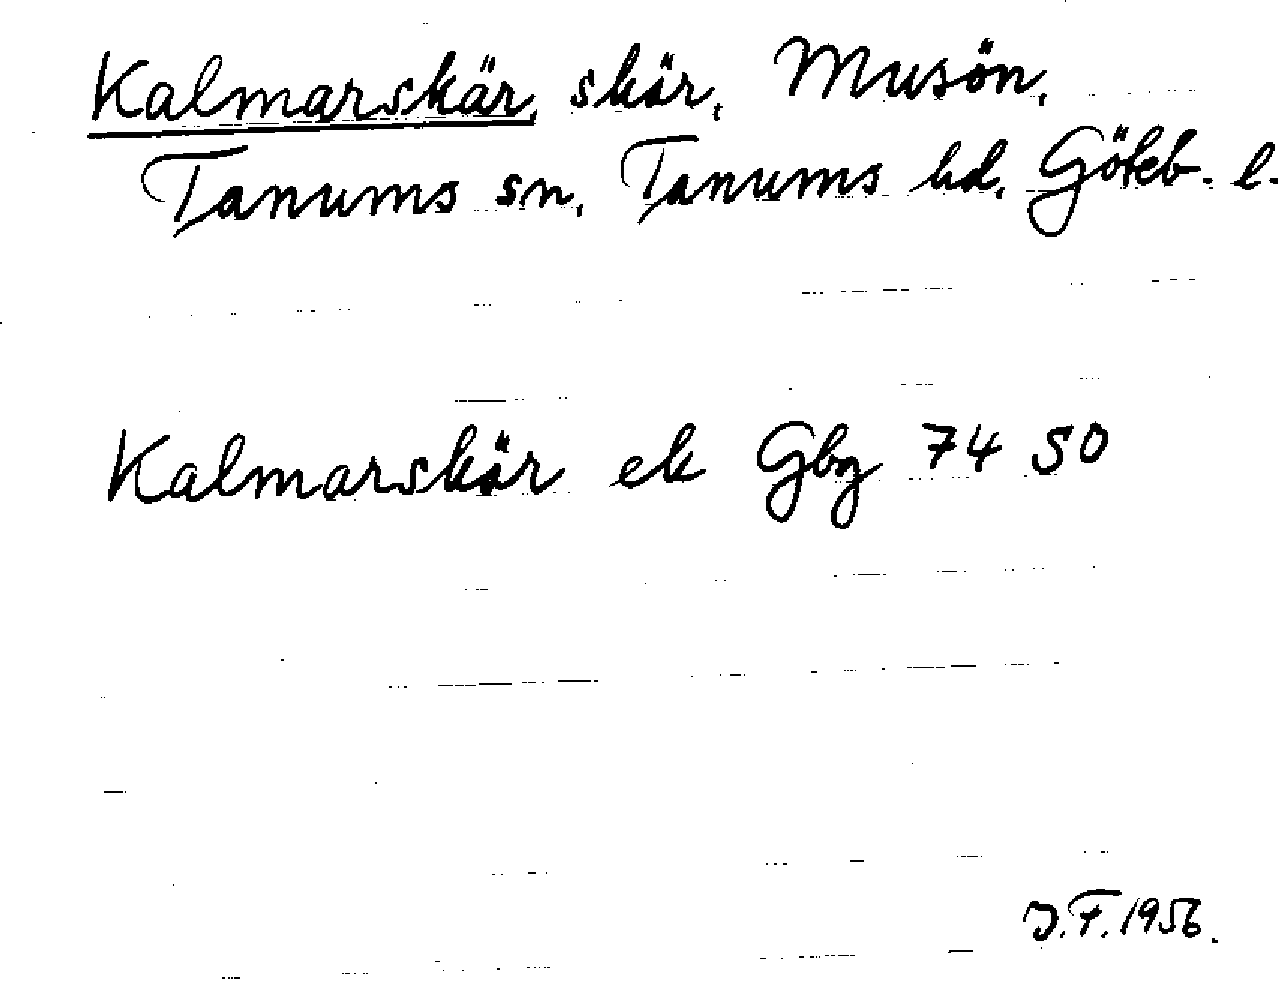 Kalmarskär, skär, Musön,
Tanums sn, Tanums hd, Göteb. l.
Kalmarskär ek Gbg 74 50
J.F. 1956.